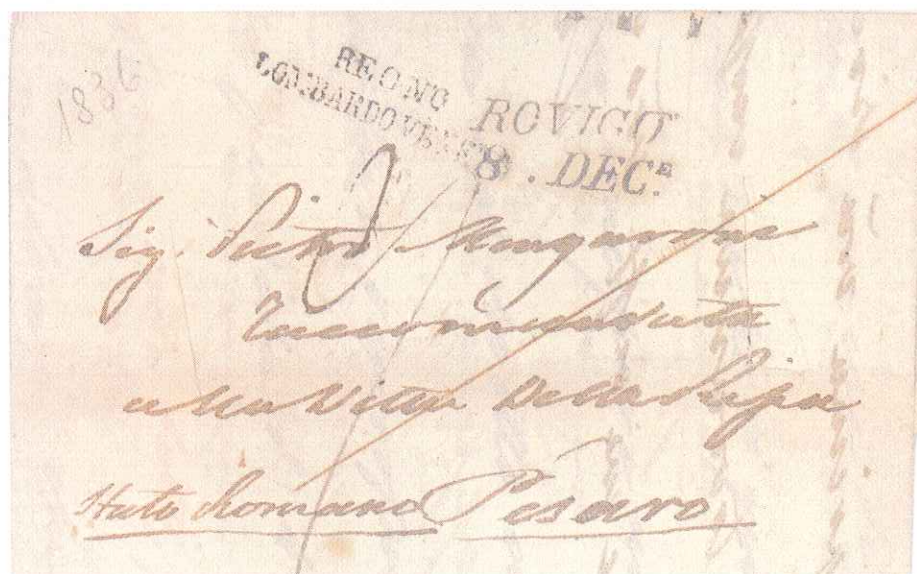 1836
REGNO
LOMBARDO VENE
ROVIGO
8. DEC.E
Sig. Pietro
Raccomandata
alla Ditta Della Ripa
Stato Romano Pesaro